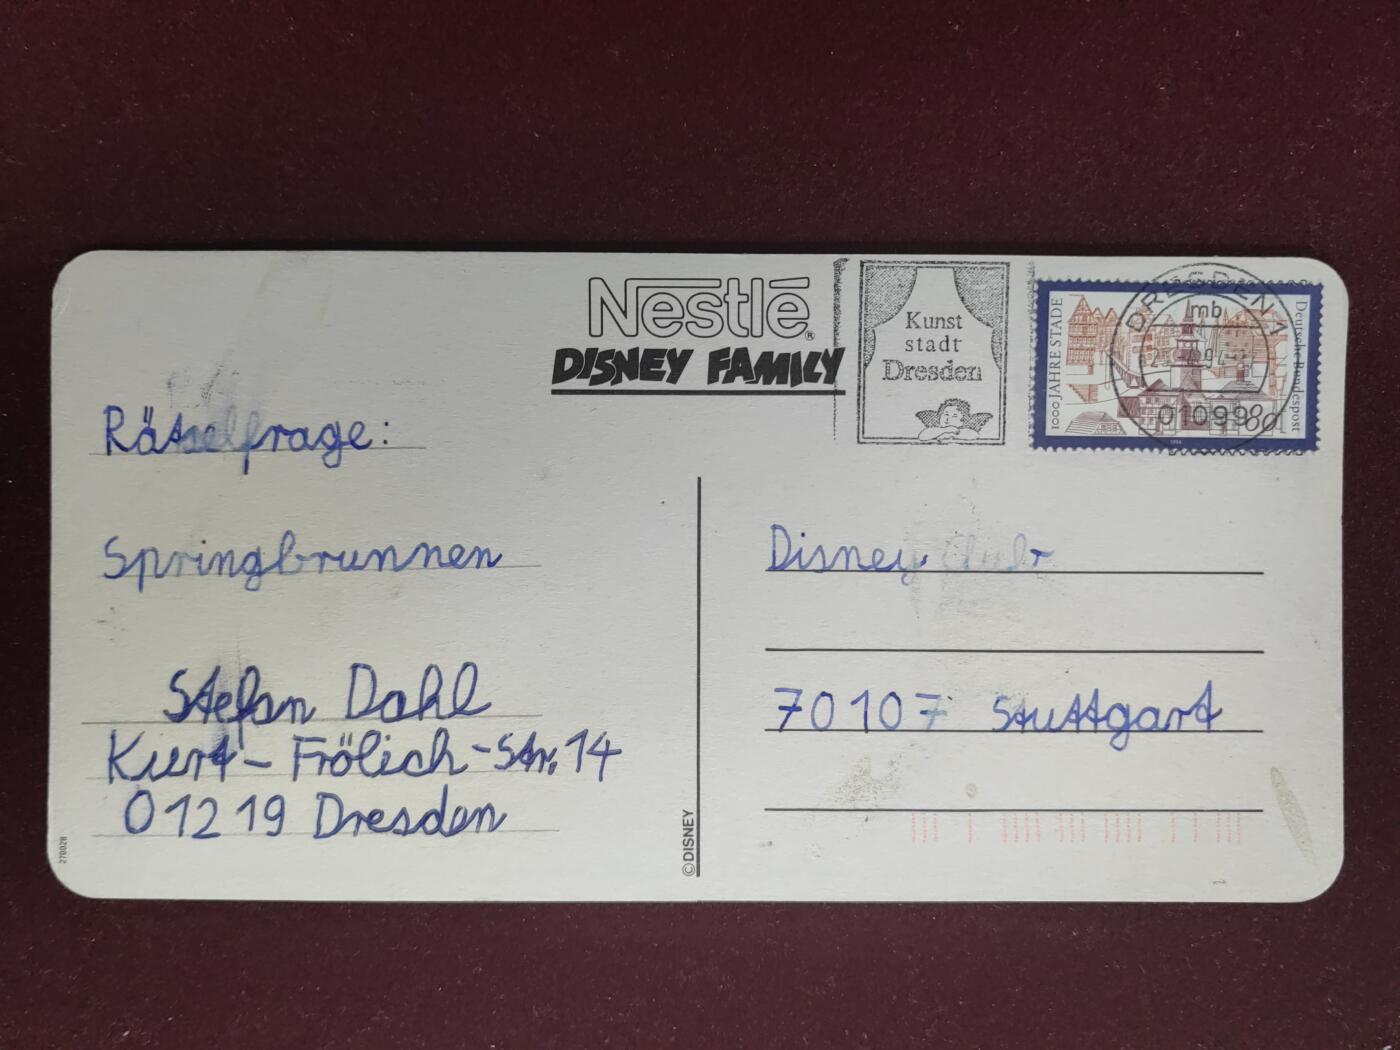 Nestlé®
DISNEY FAMILY
Kunst
stadt
Dresden
1000 JAHRE STADE
Deutsche Bundespost
80
1994
DRESDEN 1
mb
94
01099
Rätselfrage:
Springbrunnen
Stefan Dahl
Kurt-Frölich-Str. 14
01219 Dresden
270028
©DISNEY
Disney Club
70107 Stuttgart